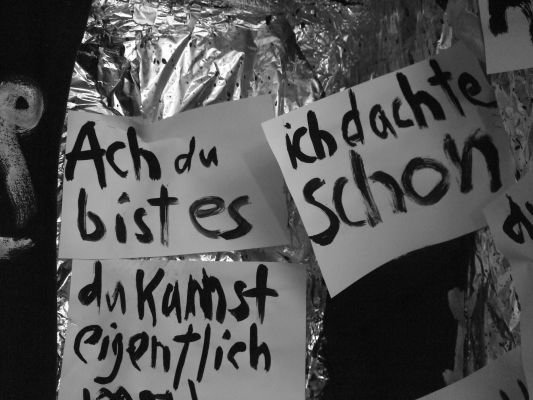 Ach du
bist es
ich dachte
schon
du kannst
eigentlich